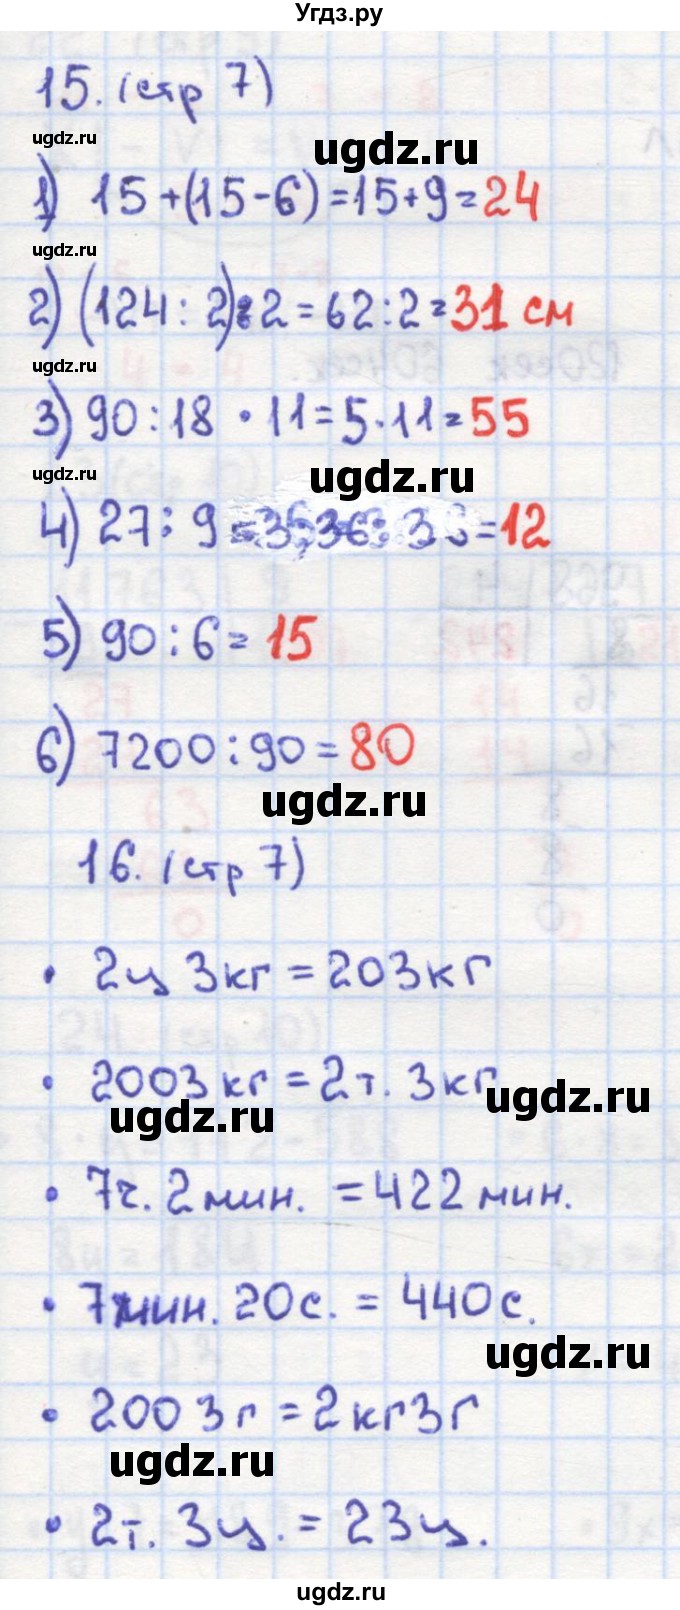 Угдз.ру
15. (стр 7)
ugdz.ru
ugdz.ru
1) 15+(15-6)=15+9=24
ugdz.ru
2) (124:2):2=62:2=31 см
ugdz.ru
3) 90:18·11=5·11=55
ugdz.ru
ugdz.ru
4) 27:9=3; 36:3=12
5) 90:6=15
6) 7200:90=80
ugdz.ru
16. (стр 7)
• 2ц 3кг=203кг
• 2003кг=2т. 3кг
ugdz.ru
ugdz.ru
• 7ч. 2мин. =422мин.
• 7мин. 20с. = 440с.
ugdz.ru
• 2003г=2кг3г
ugdz.ru
• 2т. 3ц. = 23ц.
ugdz.ru